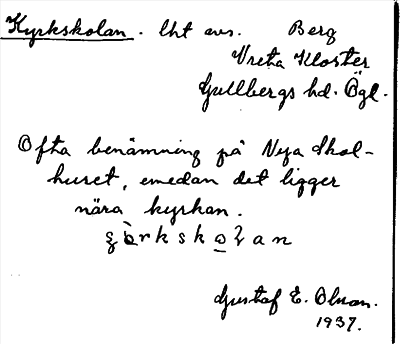 Kyrkskolan. Uht avs. Berg
Vreta Kloster
Gullbergs hd. Ögl.
Ofta benämning på Nya Skol-
huret, emedan det ligger
nära kyrkan.
Gustaf E. Olsson.
1937.